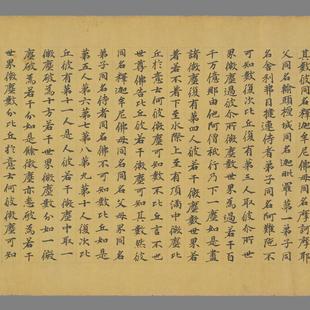 其數彼同名釋迦牟尼佛母同名摩訶摩耶
父同名輸頭檀城同名迦毗羅第一弟子同
名舍利弗目揵連侍者弟子同名阿難陀不
可知數復次比丘復有第三人取彼尒所世
界微塵過彼尒所微塵數世界為過若干百
千万億那由他阿僧祇行乃下一塵如是盡
諸微塵復有第四人彼若干微塵數世界若
著若不著下至水際上至有頂滿中微塵比
丘於意云何彼微塵可知數不比丘言不也
世尊佛告比丘彼若干微塵可知其數然彼
同名釋迦牟尼佛母同名父母世界同名
弟子同名侍者同名佛不可知數比丘如是
第五人第六第七第八第九第十人復次比
丘復有第十一人是人彼若干微塵中取一
微塵破為十方若干世界微塵數分如一微
塵破為若干分如是餘微塵亦悉破為若干
世界微塵數分比丘於意云何彼微塵可知